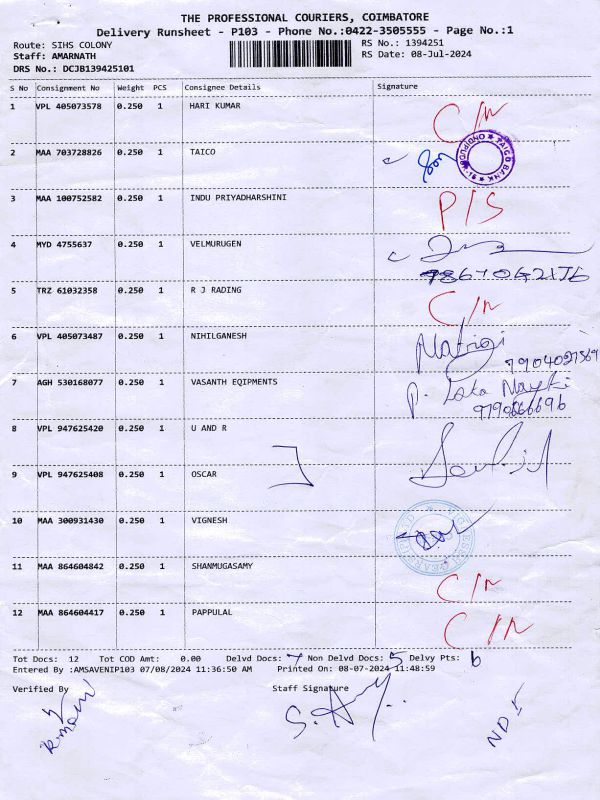 THE PROFESSIONAL COURIERS, COIMBATORE
Delivery Runsheet - P103 - Phone No.:0422-3505555 - Page No.:1
Route: SIHS COLONY RS No.: 1394251
Staff: AMARNATH RS Date: 08-Jul-2024
DRS No.: DCJB139425101
S No Consignment No Weight PCS Consignee Details Signature
1 VPL 405073578 0.250 1 HARI KUMAR C/N
2 MAA 703728826 0.250 1 TAICO TAICO BANK
3 MAA 100752582 0.250 1 INDU PRIYADHARSHINI P/S
4 MYD 4755637 0.250 1 VELMURUGEN
5 TRZ 61032358 0.250 1 R J RADING C/N
6 VPL 405073487 0.250 1 NIHILGANESH 7904027569
7 AGH 530168077 0.250 1 VASANTH EQIPMENTS
8 VPL 947625420 0.250 1 U AND R
9 VPL 947625408 0.250 1 OSCAR
10 MAA 300931430 0.250 1 VIGNESH
11 MAA 864604842 0.250 1 SHANMUGASAMY C/N
12 MAA 864604417 0.250 1 PAPPULAL C/N
Tot Docs: 12 Tot COD Amt: 0.00 Delvd Docs: 7 Non Delvd Docs: 5 Delvy Pts: 6
Entered By :AMSAVENIP103 07/08/2024 11:36:50 AM Printed On: 08-07-2024 11:48:59
Verified By Staff Signature